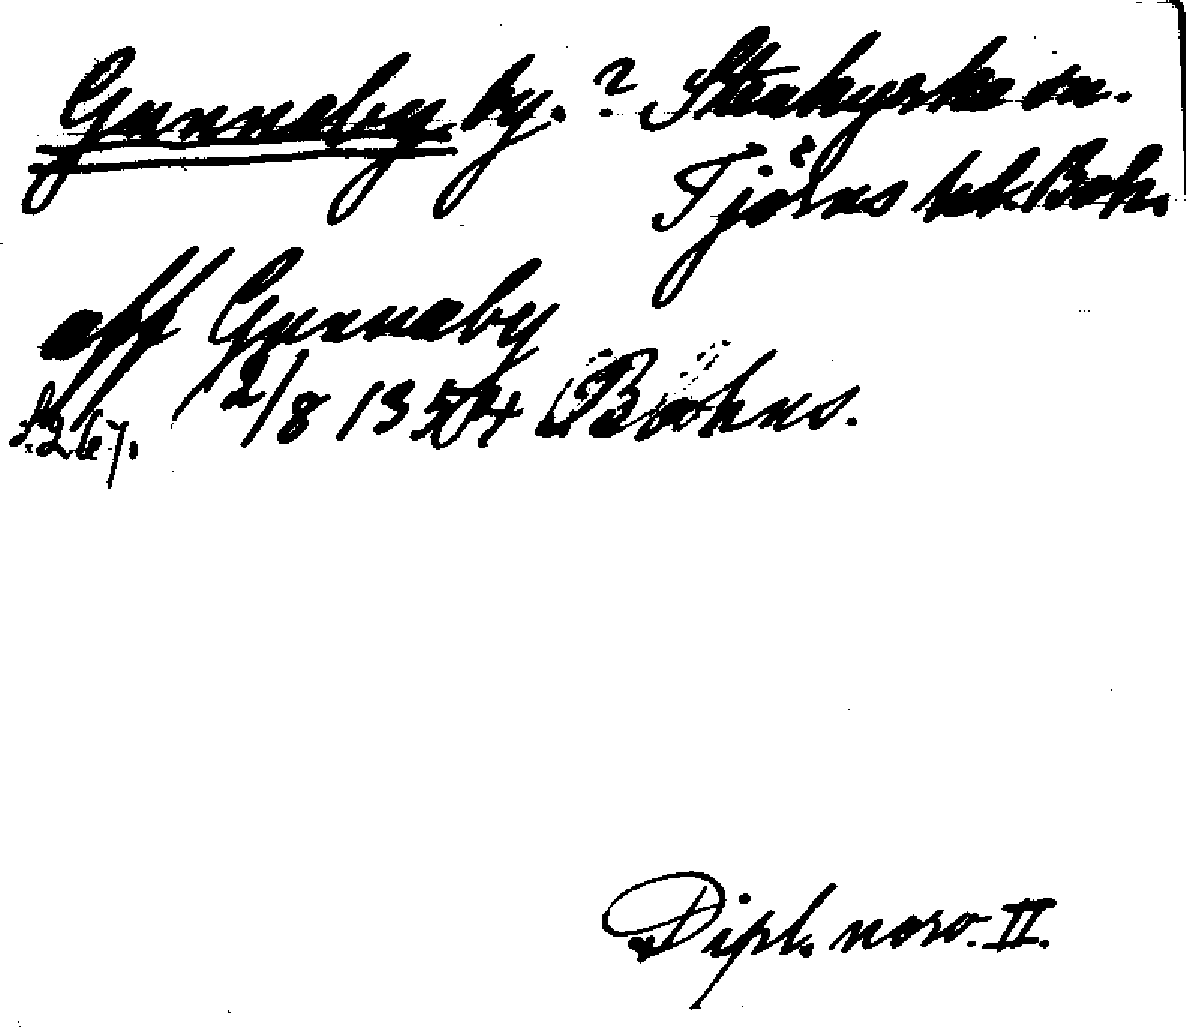 Gunneby by. ? Stenkyrka sn.
Tjörns hd. Boh.
aff Gunnaby
s. 267. 2/8 1354 Bohus.
Dipl. norv. II.